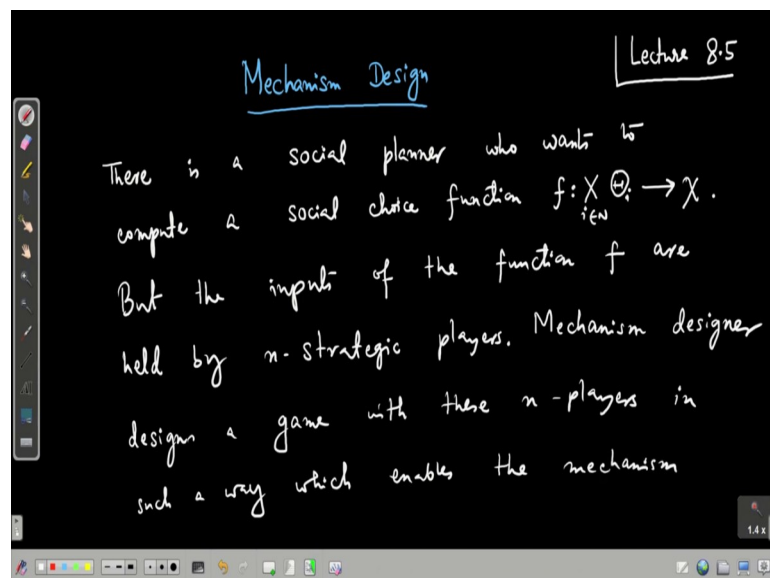 Lecture 8.5
Mechanism Design
There is a social planner who wants to
compute a social choice function f: X Θi → X.
i∈N
But the inputs of the function f are
held by n-strategic players. Mechanism designer
designs a game with these n-players in
such a way which enables the mechanism
1.4x